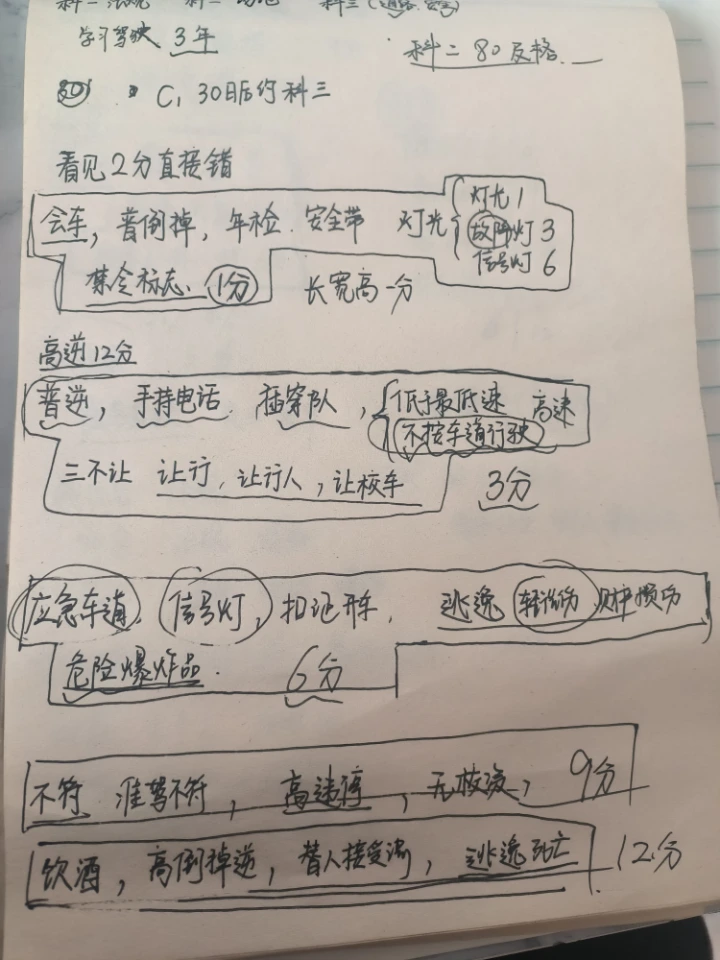 科三(道路、安全)
学习驾驶 3年
科二 80及格
C1 30日后约科三
看见2分直接错
会车,普倒掉,年检.安全带 灯光 灯光1
故障灯3
信号灯6
禁令标志、1分 长宽高一分
高逆12分
普逆,手持电话.插穿队,低于最低速 高速
不按车道行驶
三不让 让行,让行人,让校车 3分
应急车道.信号灯,扣记开车. 逃逸 轻微伤 财损
危险爆炸品. 6分
不符 准驾不符,高速停,无校资,9分
饮酒,高倒掉逆,替人接受,逃逸死亡 12分